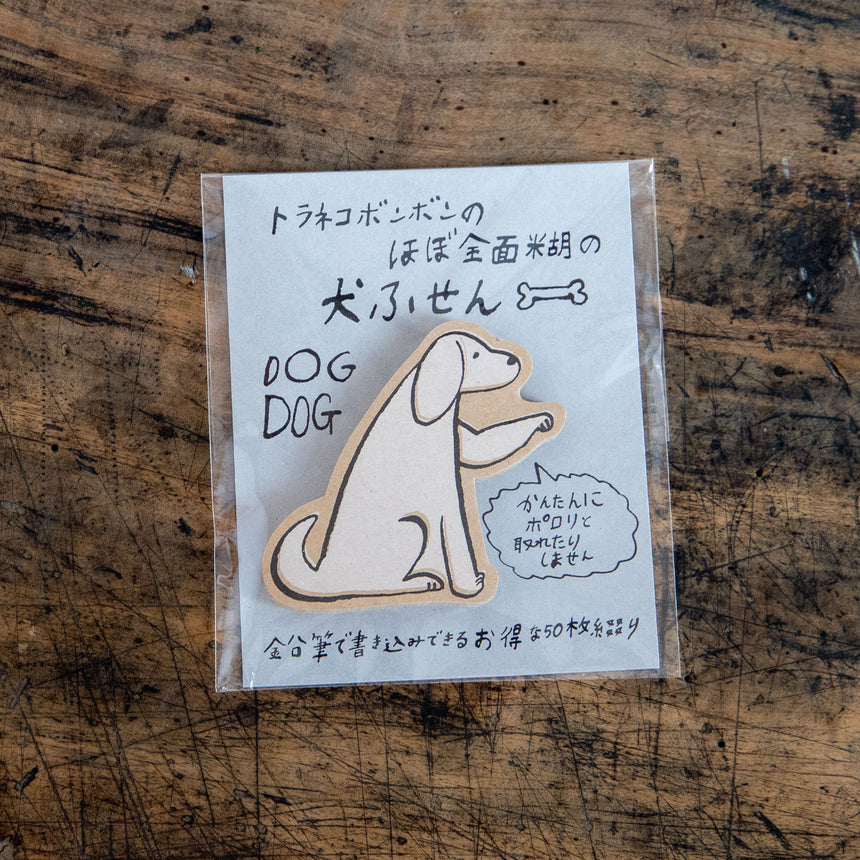 トラネコボンボンの
ほぼ全面糊の
犬ふせん
DOG
DOG
かんたんに
ポロリと
取れたり
しません
鉛筆で書き込みできるお得な50枚綴り